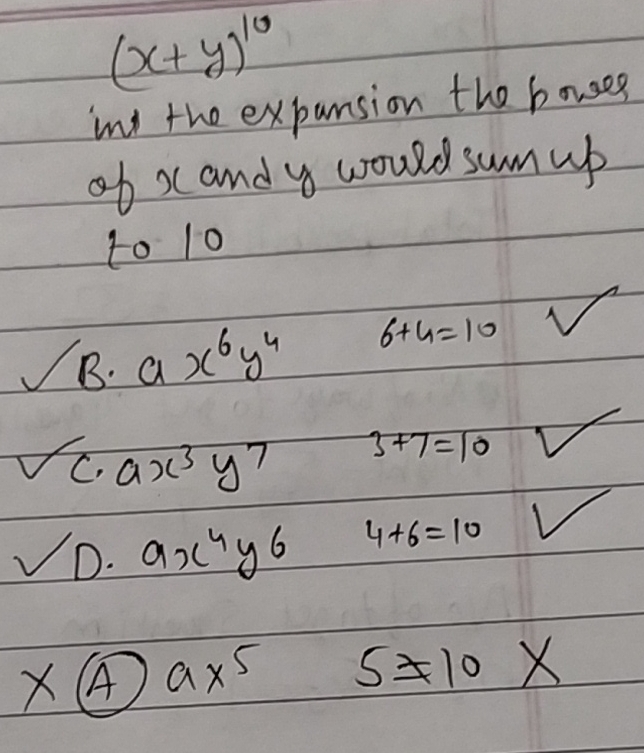 (x+y)^10
in the expansion the power
of x and y would sum up
to 10
✓ B. a x^6 y^4 6+4=10 ✓
✓ C. a x^3 y^7 3+7=10 ✓
✓ D. a x^4 y 6 4+6=10 ✓
X (A) a x^5 5≠10 X